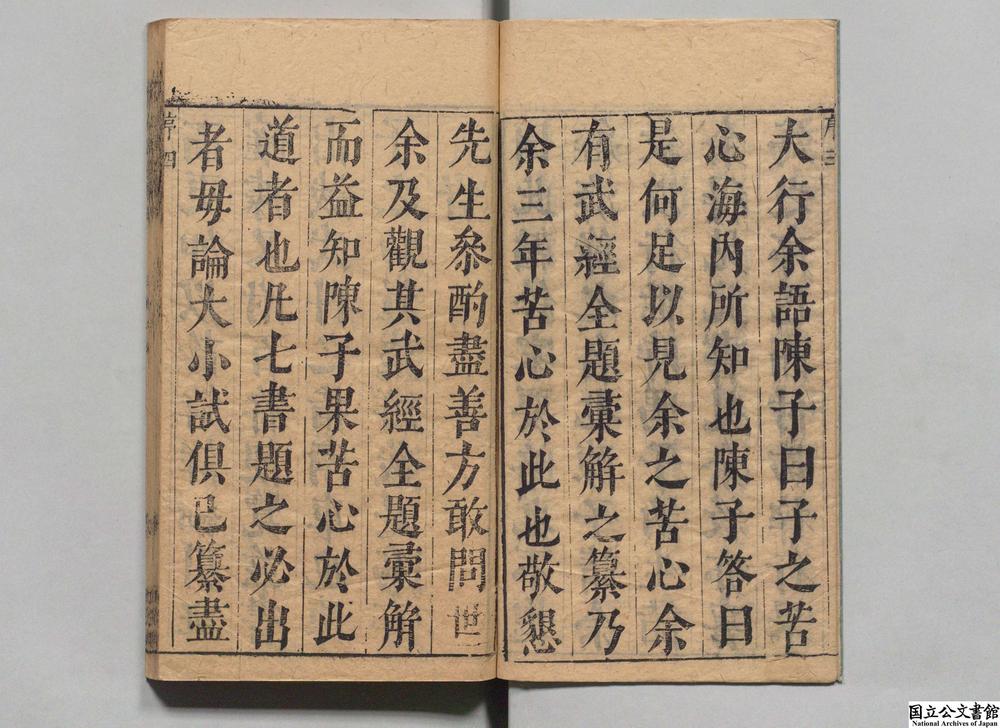 序三
大行余語陳子曰子之苦
心海內所知也陳子答曰
是何足以見余之苦心余
有武經全題彚解之纂乃
余三年苦心於此也敬懇
先生叅酌盡善方敢問世
余及觀其武經全題彚解
而益知陳子果苦心於此
道者也凡七書題之必出
者毋論大小試俱已纂盡
序四
国立公文書館
National Archives of Japan